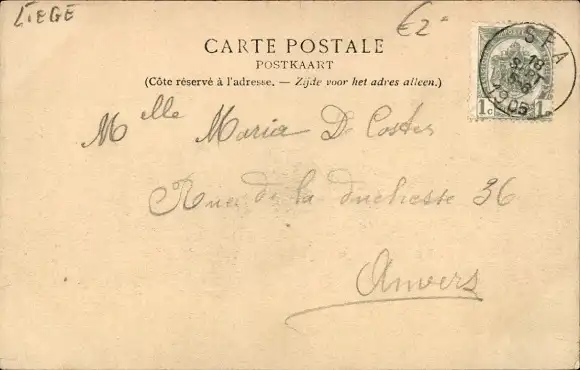 LIEGE
€2-
CARTE POSTALE
POSTKAART
(Côte réservé à l'adresse. — Zijde voor het adres alleen.)
SPA
18
SEPT
1905
1c 1c
Melle Maria De Coster
Rue de la duchesse 36
Anvers